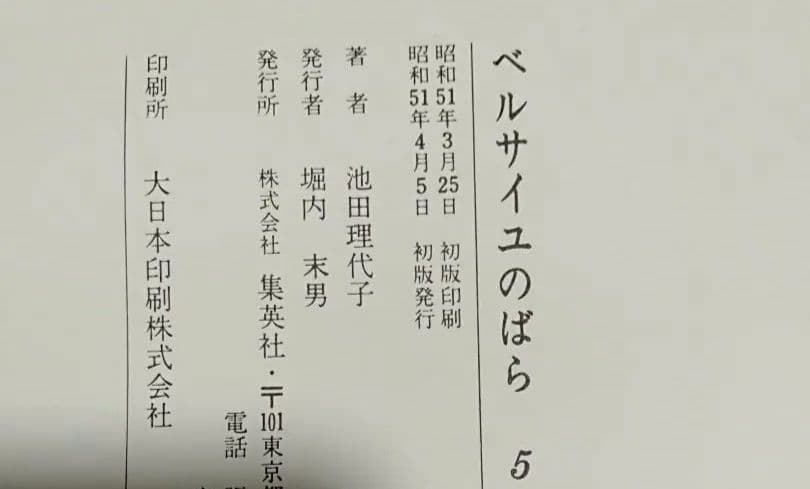 ベルサイユのばら 5
昭和51年3月25日 初版印刷
昭和51年4月5日 初版発行
著者 池田理代子
発行者 堀内末男
発行所 株式会社 集英社・〒101東京都
電話
印刷所 大日本印刷株式会社